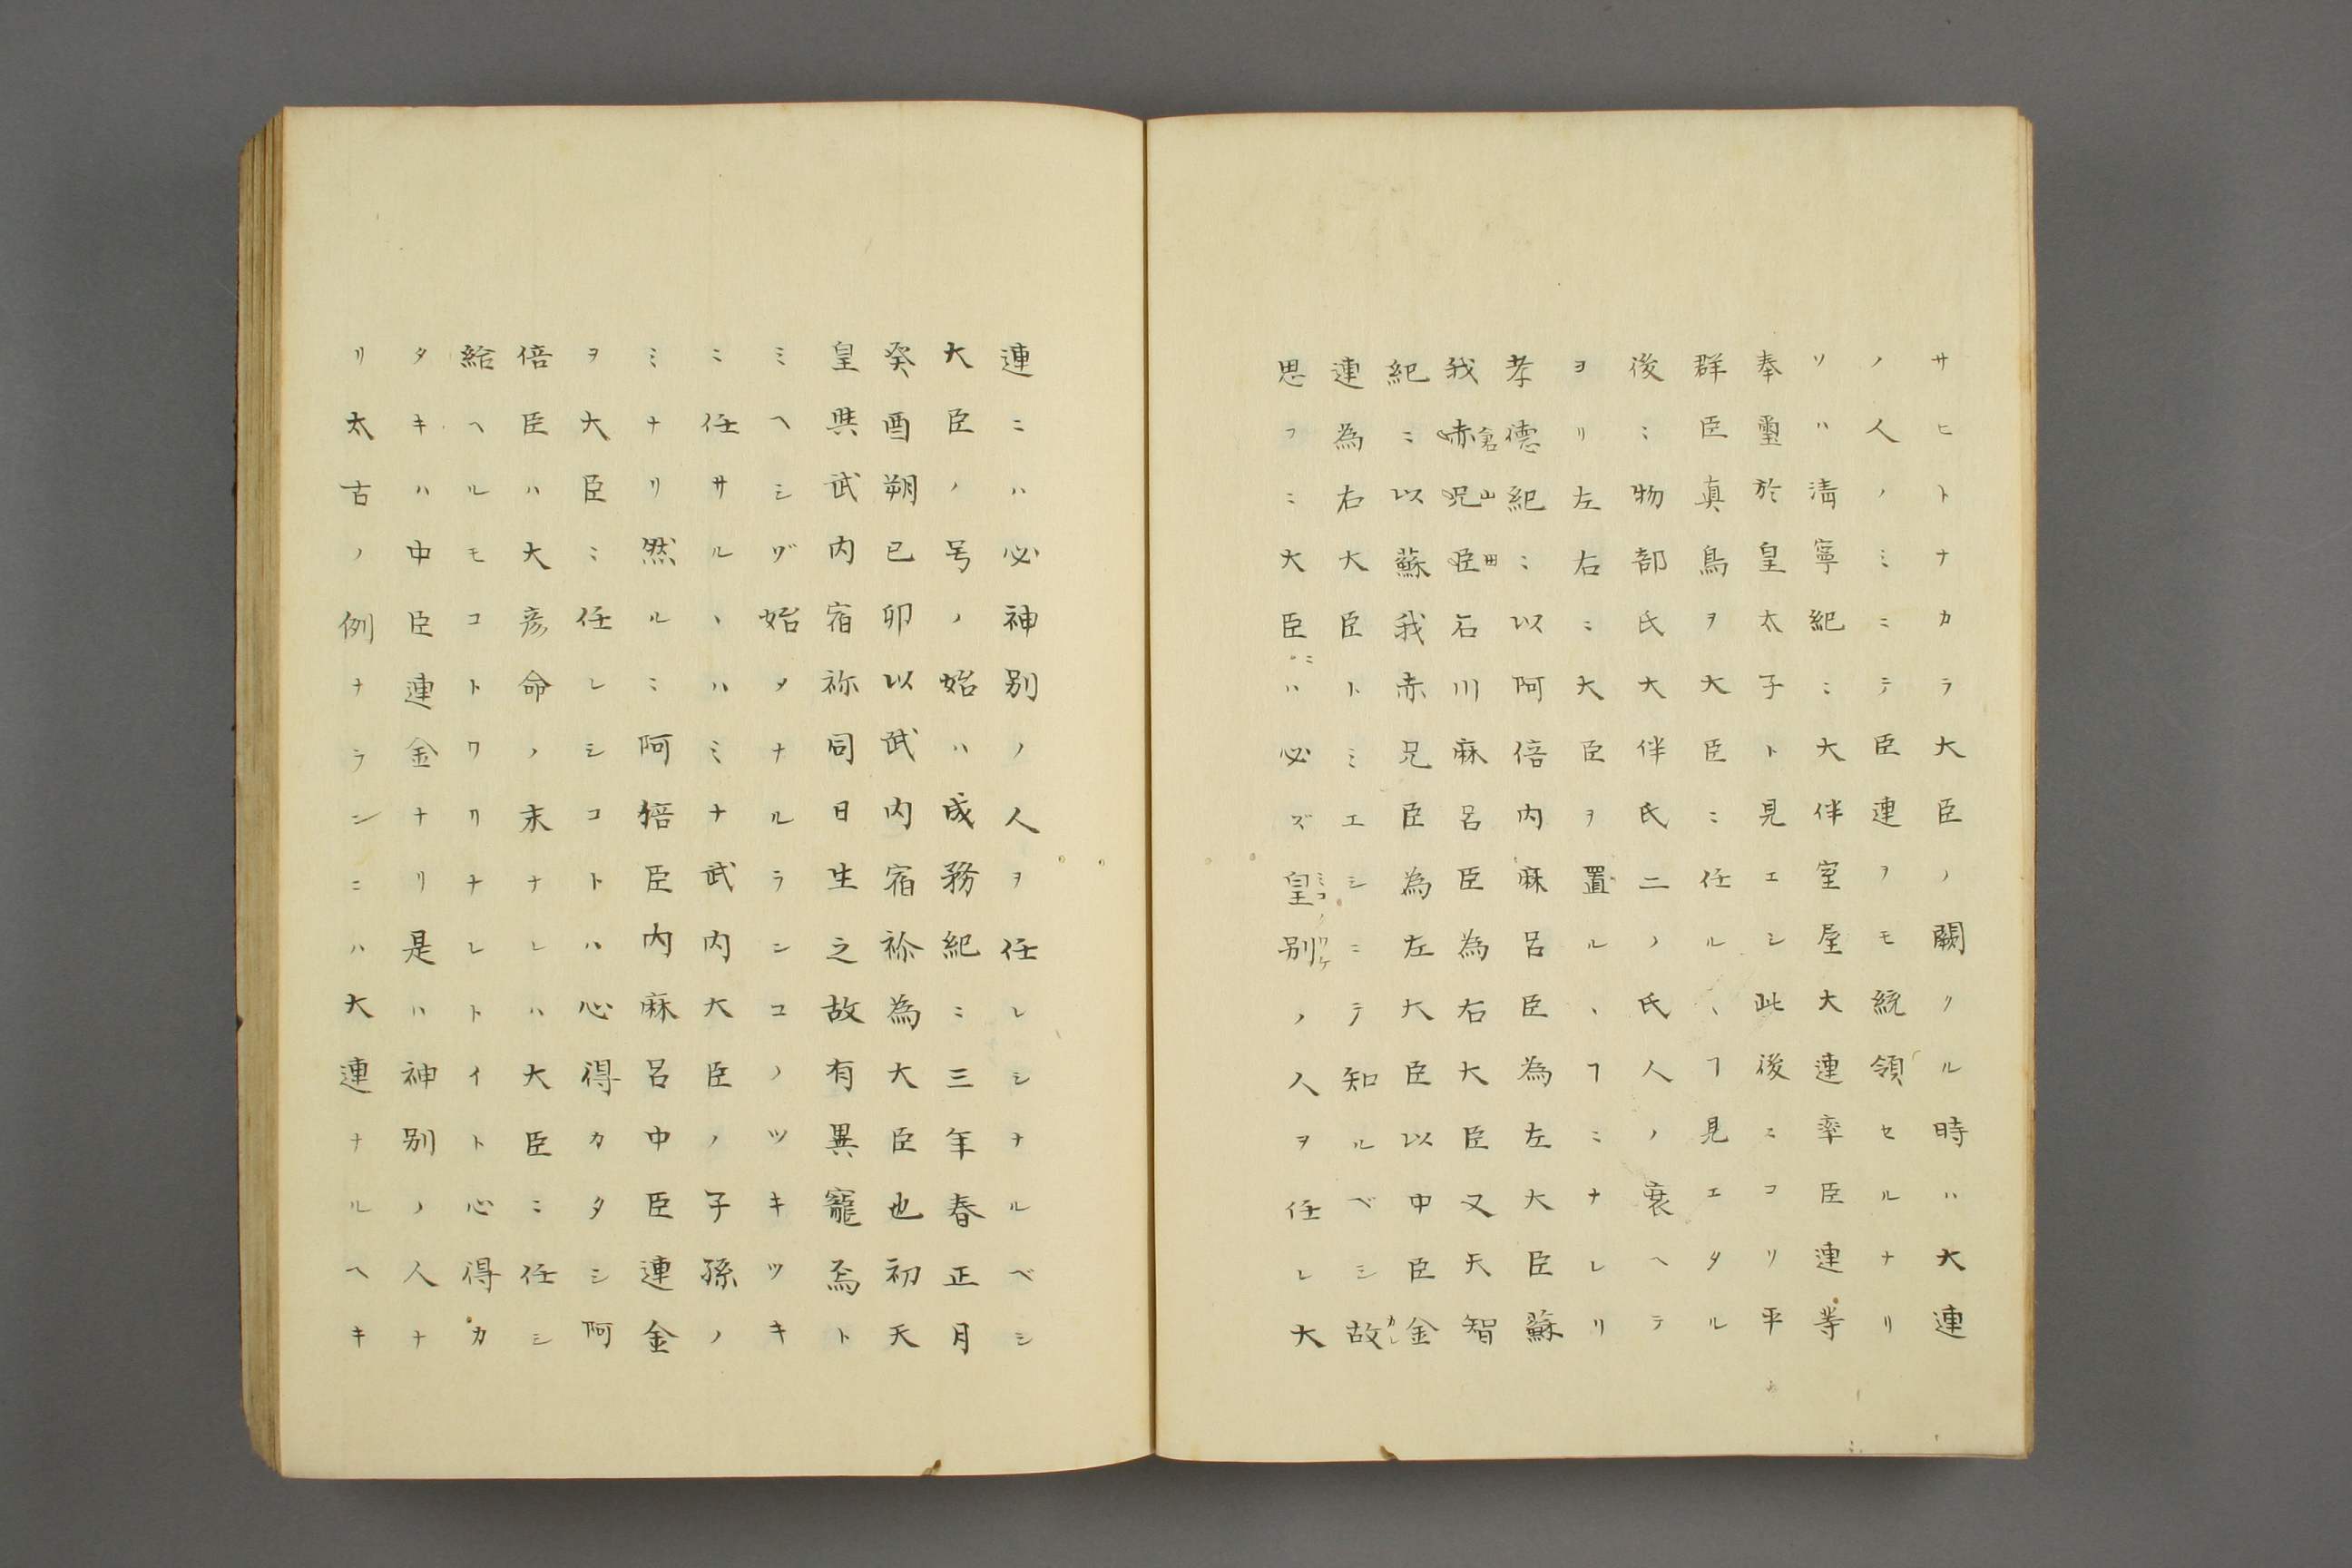 サヒトナカラ大臣ノ闕クル時ハ大連
ノ人ノミニテ臣連ヲモ統領セルナリ
ソハ清寧紀ニ大伴室屋大連率臣連等
奉璽於皇太子ト見エシ此後ニコリ平
群臣真鳥ヲ大臣ニ任ルヽヿ見エタル
後ニ物部氏大伴氏二ノ氏人ノ衰ヘテ
ヲリ左右ニ大臣ヲ置ルヽヿニナレリ
孝德紀ニ以阿倍内麻呂臣為左大臣蘇
我赤呪臣倉山田石川麻呂臣為右大臣又天智
紀ニ以蘇我赤兄臣為左大臣以中臣金
連為右大臣トミエシニテ知ルベシ故カレ
思フニ大臣ニハ必ズ皇別ミコノワケノ人ヲ任レ大
連ニハ必神別ノ人ヲ任レシナルベシ
大臣ノ号ノ始ハ成務紀ニ三年春正月
癸酉朔己卯以武内宿祢為大臣也初天
皇與武内宿祢同日生之故有異寵焉ト
ミヘシヅ始メナルラシコノツキツキ
ニ任サルヽハミナ武内大臣ノ子孫ノ
ミナリ然ルニ阿倍臣内麻呂中臣連金
ヲ大臣ニ任レシコトハ心得カタシ阿
倍臣ハ大彦命ノ末ナレハ大臣ニ任シ
給ヘルモコトワリナレトイト心得カ
タキハ中臣連金ナリ是ハ神別ノ人ナ
リ太古ノ例ナランニハ大連ナルヘキ